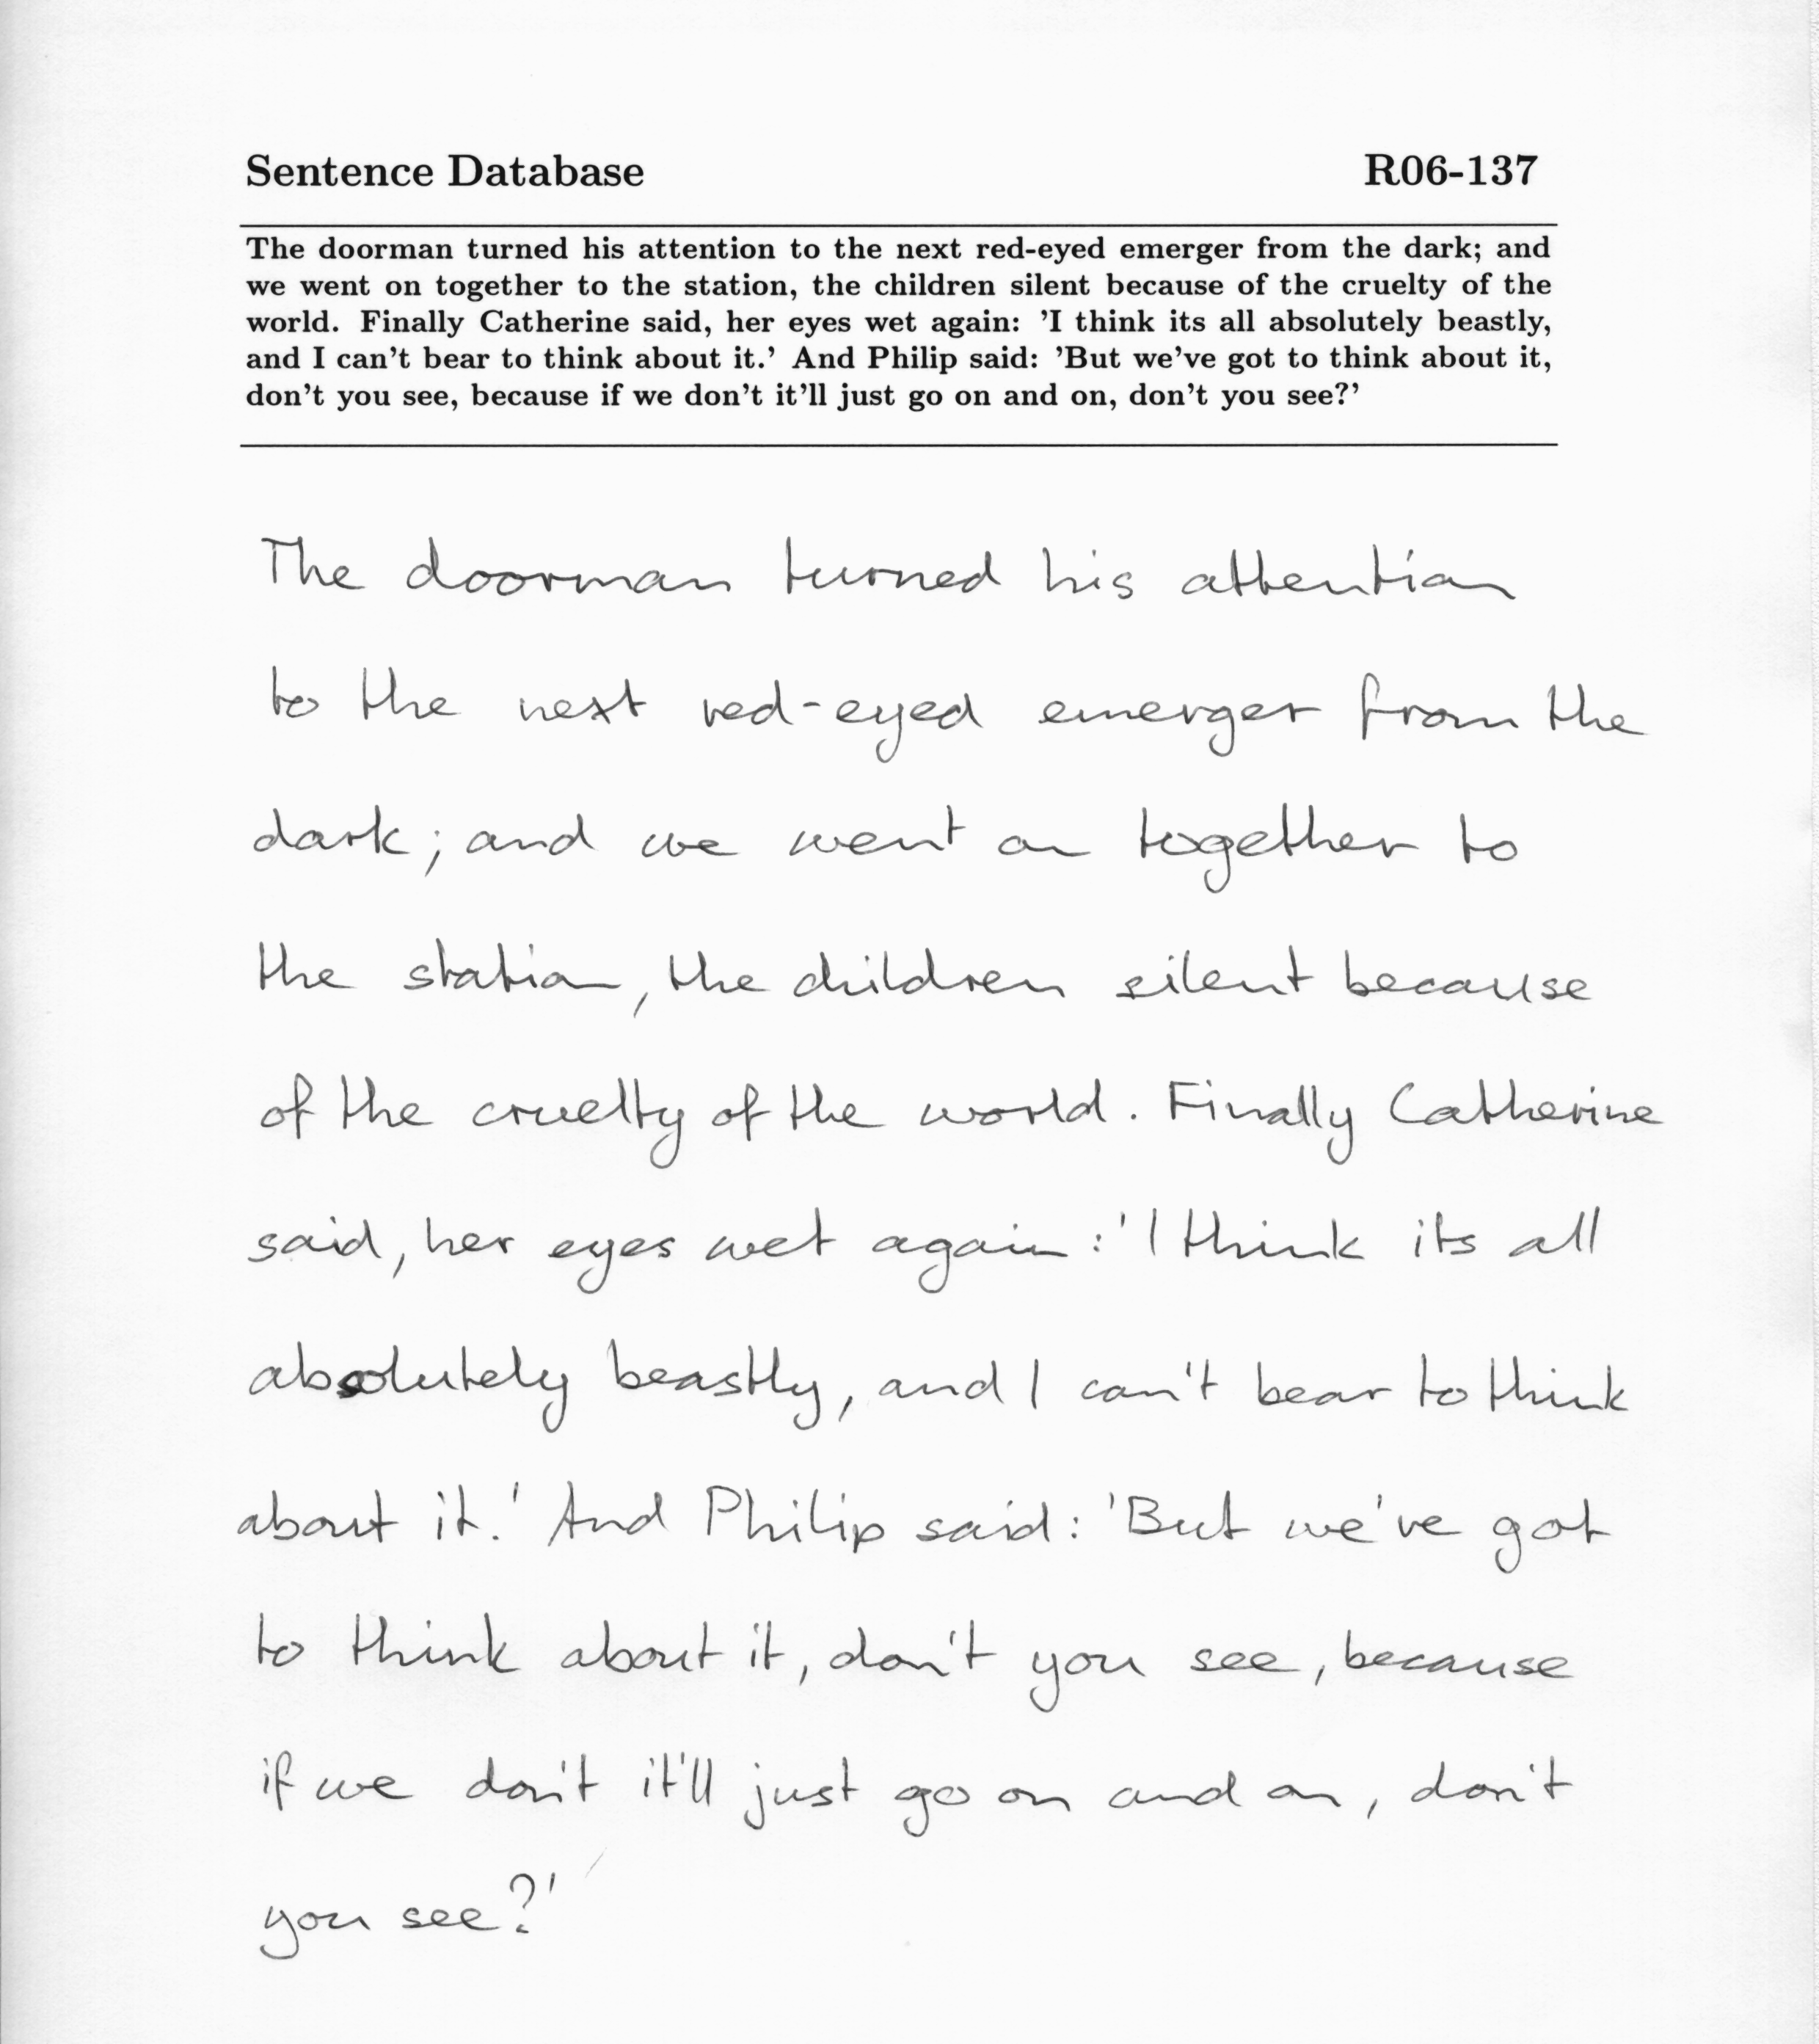 Sentence Database R06-137
The doorman turned his attention to the next red-eyed emerger from the dark; and
we went on together to the station, the children silent because of the cruelty of the
world. Finally Catherine said, her eyes wet again: 'I think its all absolutely beastly,
and I can't bear to think about it.' And Philip said: 'But we've got to think about it,
don't you see, because if we don't it'll just go on and on, don't you see?'
The doorman turned his attention
to the next red-eyed emerger from the
dark; and we went on together to
the station, the children silent because
of the cruelty of the world. Finally Catherine
said, her eyes wet again: 'I think its all
absolutely beastly, and I can't bear to think
about it.' And Philip said: 'But we've got
to think about it, don't you see, because
if we don't it'll just go on and on, don't
you see?'